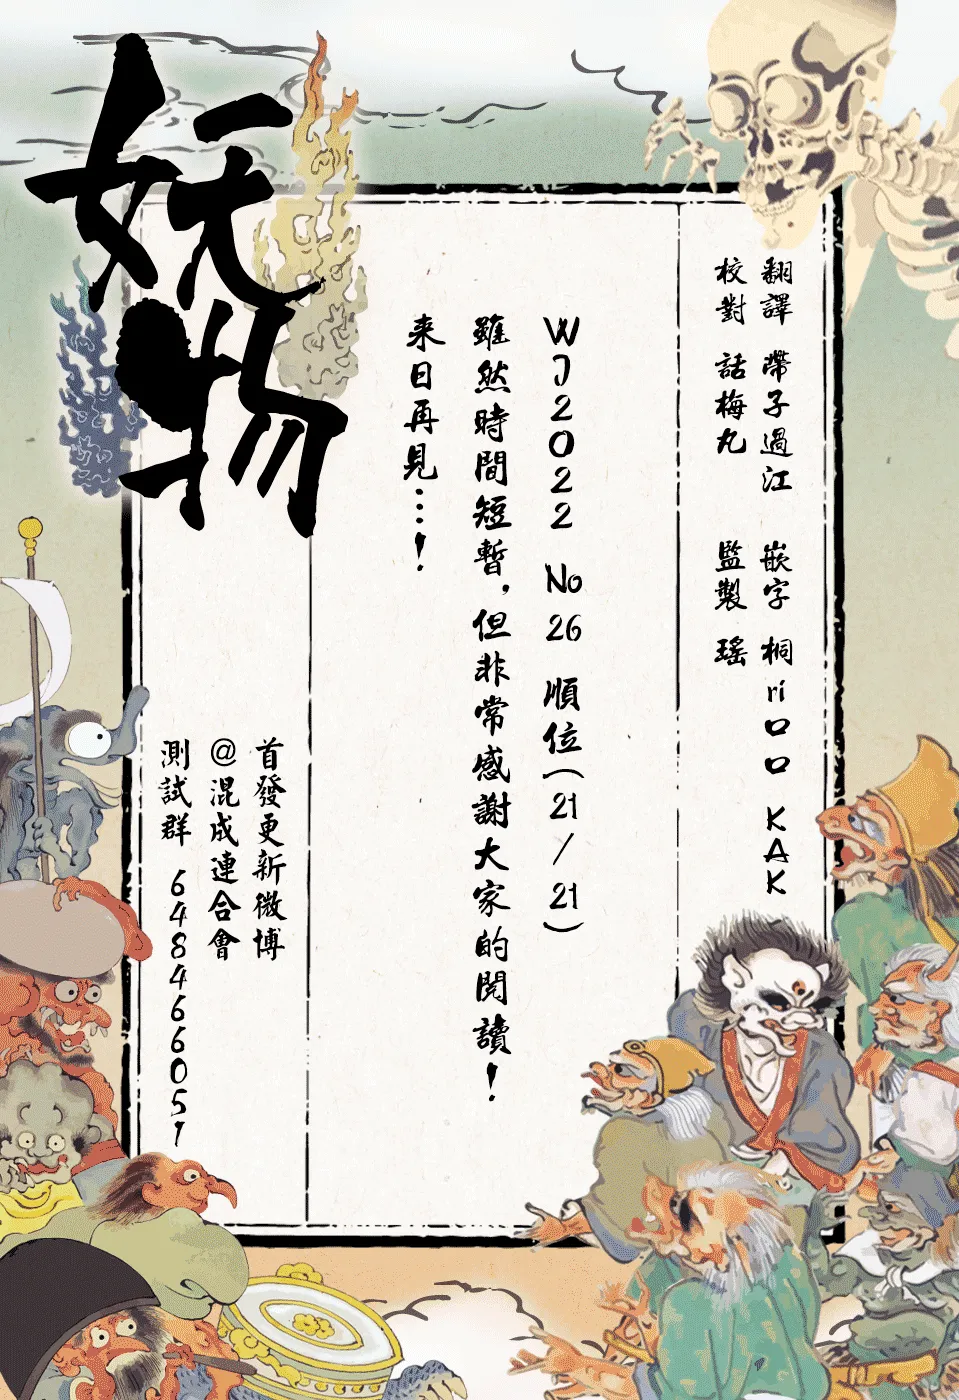 妖物
翻譯 帶子過江 嵌字 桐ri口口 KAK
校對 話梅丸 監製 瑤
WJ2022 No26 順位(21/21)
雖然時間短暫，但非常感謝大家的閱讀！
来日再見…！
首發更新微博
@混成連合會
測試群 648466051